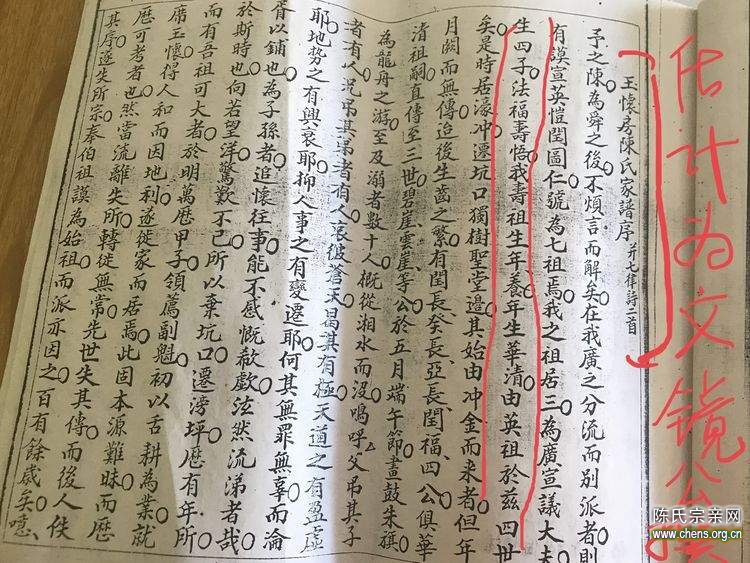 估计为文镜公撰
王懷房陳氏家譜序 并七律詩二首
予之陳為舜之後不煩言而解矣在我廣之分流而別派者則
有謨宣英愷閏圖仁號為七祖焉我之祖居三為廣宣議大夫
生四子法福壽悟我壽祖生年養年生華清由英祖於茲四世
矣是時居濠冲遷坑口獨樹聖堂邉其始由冲金而来者但年
月闕而無傳迨後生齒之繁有閏長癸長亞長閏福四公俱華
清祖嗣直傳至三世碧崖雲崖等公於五月端午節畫鼓朱旗
為龍舟之游至及溺者數十人概從湘水而没嗚呼父吊其子
者有人兄吊其弟者有人哀彼蒼天曷其有極天道之有盈虚
耶地勢之有興衰耶抑人事之有變遷耶何其無罪無辜而淪
胥以鋪也為子孫者追懷往事能不感慨欷歔泫然流涕者哉
於斯時也向若望洋驚歎不已所以棄坑口遷滂坪歷有年所
而有吾祖可大者於明萬歷甲子領薦副魁初以舌耕為業就
席王懷得人和而因地利遂徙家而居焉此固本源難昧而歷
歷可考者也然當流離失所轉徙無常先世失其傳而後人佚
其序遂失所宗奉伯祖謨為始祖而派亦因之百有餘歲矣噫
陈氏宗亲网
www.chens.org.cn